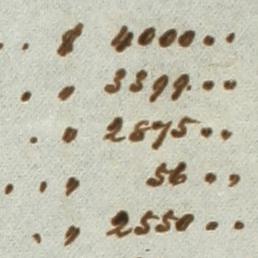 . . $ 4000 . .
. " 3399 . .
. " 2875 . .
. . " 56 . .
. " 2550 . .